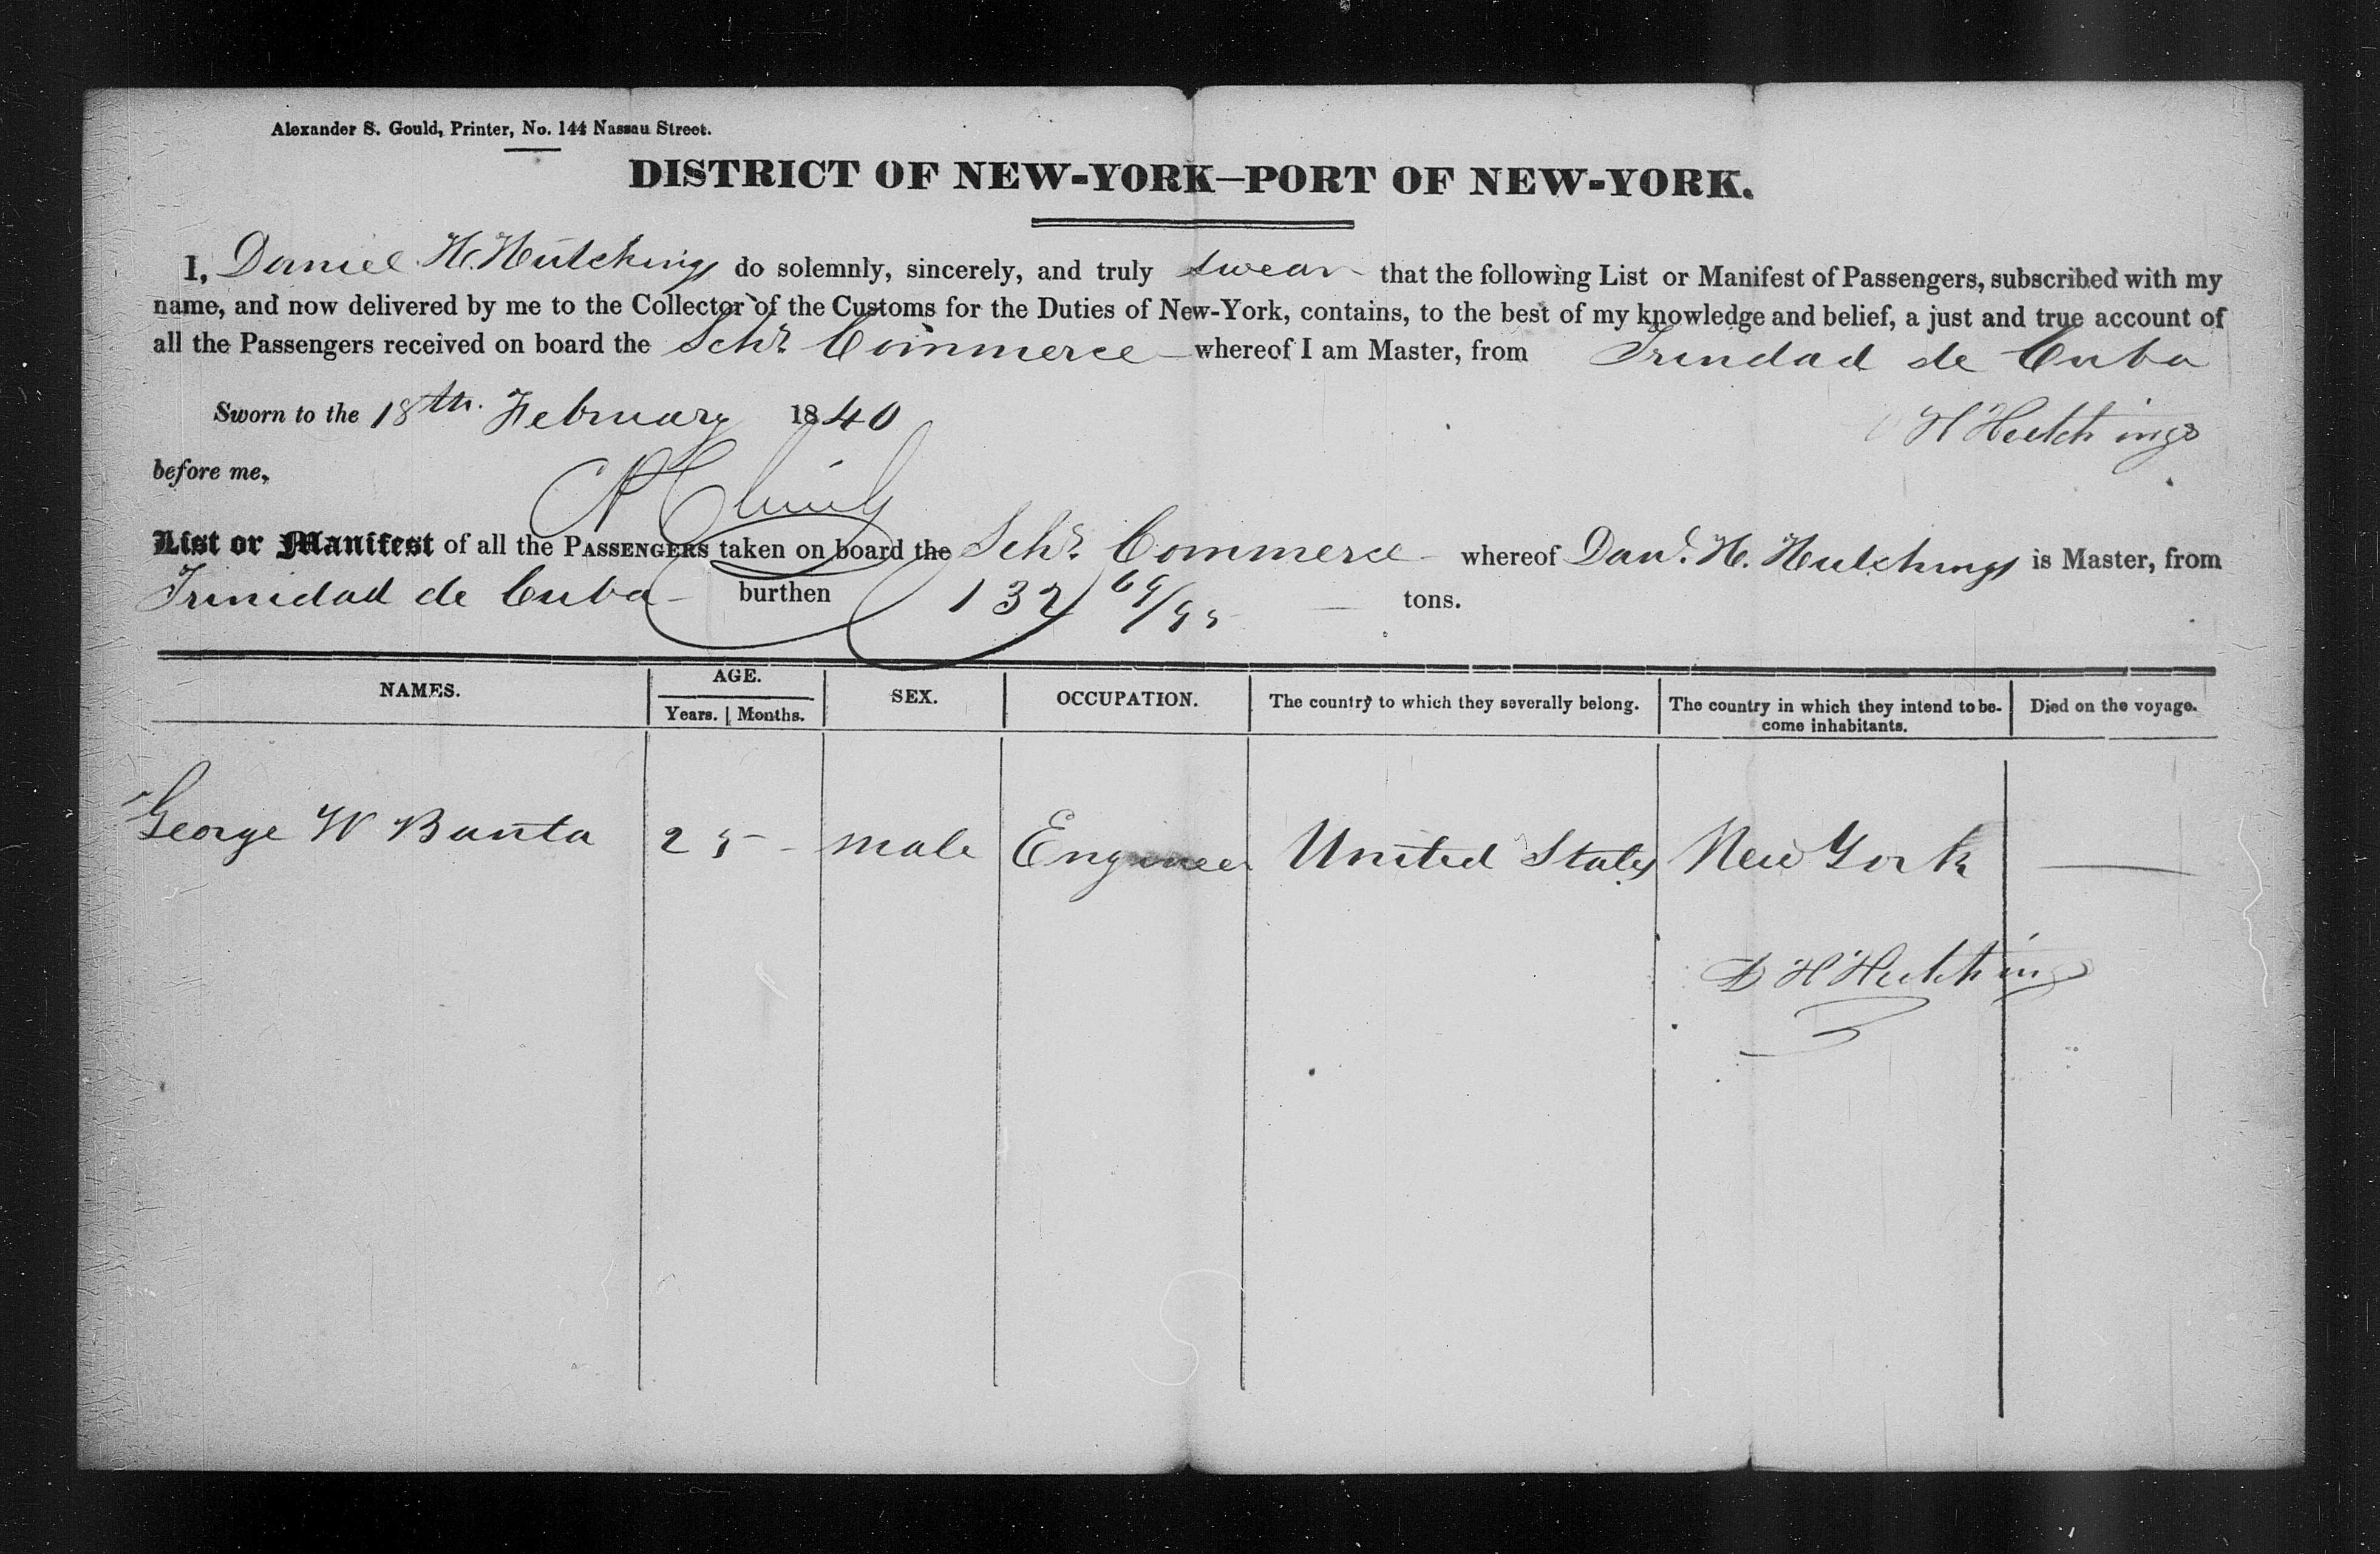 Alexander S. Gould, Printer, No. 144 Nassau Street.
DISTRICT OF NEW-YORK—PORT OF NEW-YORK.
I, Daniel H. Hutchings do solemnly, sincerely, and truly swear that the following List or Manifest of Passengers, subscribed with my
name, and now delivered by me to the Collector of the Customs for the Duties of New-York, contains, to the best of my knowledge and belief, a just and true account of
all the Passengers received on board the Schr Commerce whereof I am Master, from Trindad de Cuba
Sworn to the 18th. February 1840
H Hutchings
before me,
List or Manifest of all the PASSENGERS taken on board the Schr Commerce whereof Danl. H. Hutchings is Master, from
Trinidad de Cuba burthen 132 69/95 tons.
NAMES. AGE. SEX. OCCUPATION. The country to which they severally belong. The country in which they intend to be-
come inhabitants. Died on the voyage.
Years. Months.
George W Banta 25 male Engineer United States New York —
D H Hutchings